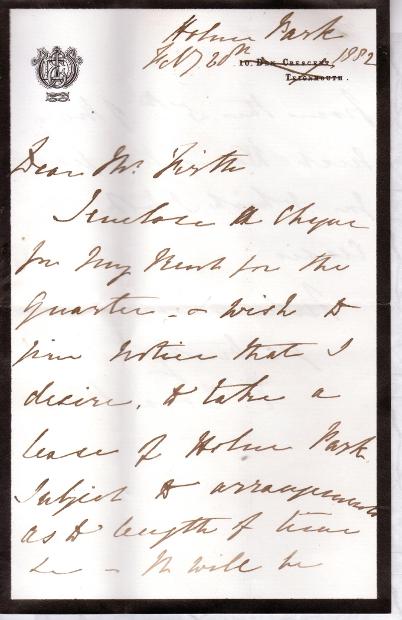 Holme Park
Feby 20th 1882
10, Den Crescent,
Teignmouth.
Dear Mr Firth
I enclose a Cheque
for my Rent for the
Quarter - & wish to
give notice that I
desire, to take a
lease of Holme Park
Subject to arrangements
as to length of time
&c - It will be